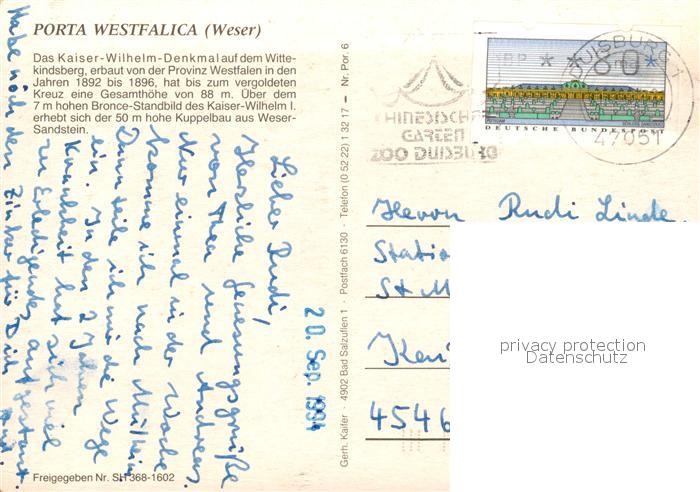 PORTA WESTFALICA (Weser)
Das Kaiser-Wilhelm-Denkmal auf dem Witte-
kindsberg, erbaut von der Provinz Westfalen in den
Jahren 1892 bis 1896, hat bis zum vergoldeten
Kreuz eine Gesamthöhe von 88 m. Über dem
7 m hohen Bronce-Standbild des Kaiser-Wilhelm I.
erhebt sich der 50 m hohe Kuppelbau aus Weser-
Sandstein.
Lieber Rudi,
Herzliche Genesungsgrüße
von Thea und Andreas
Nur einmal in der Woche
komme ich nach Mülheim
Dann teile ich mir die Wege
ein. In den 2 Jahren
Krankheit hat sich viel
zu Erledigendes aufgestaut
Habe noch den für Dich
Freigegeben Nr. SH 368-1602
20. Sep. 1994
Gerh. Kaifer · 4902 Bad Salzuflen 1 · Postfach 6130 · Telefon (0 52 22) 1 32 17 – Nr. Por. 6
CHINESISCHER
GARTEN
ZOO DUISBURG
DBP * * 80 *
DEUTSCHE BUNDESPOST
DUISBURG 1
47051
Herrn Rudi Linde
Statio
St M
4546
privacy protection
Datenschutz